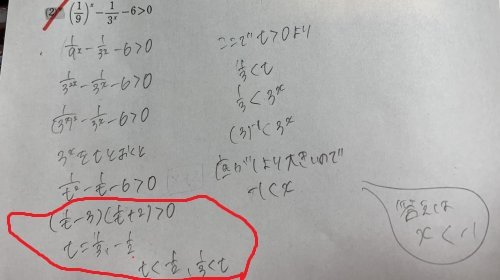 (2) (1/9)^x - 1/3^x - 6 > 0
1/9^x - 1/3^x - 6 > 0
1/3^2x - 1/3^x - 6 > 0
1/(3^x)^2 - 1/3^x - 6 > 0
3^xをtとおくと
1/t^2 - 1/t - 6 > 0
(1/t - 3)(1/t + 2) > 0
t = 1/3, -1/2
t < -1/2, 1/3 < t
ここでt>0より
1/3 < t
1/3 < 3^x
(3)^-1 < 3^x
1より大きいので
-1 < x
答えは
x < -1